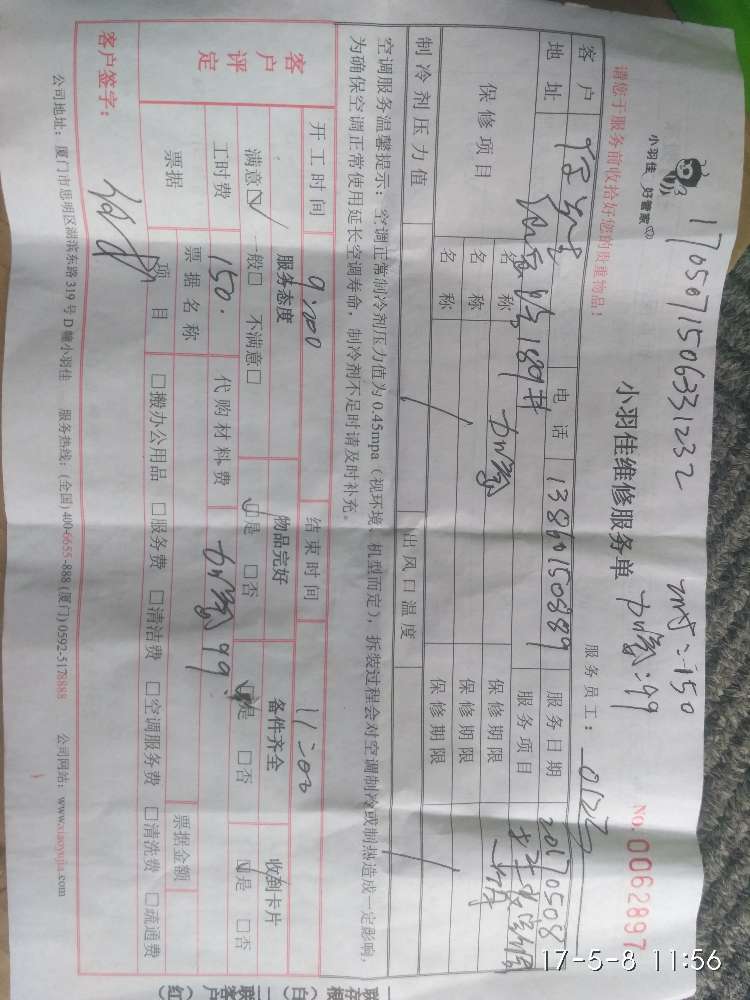 1705071506331232
加氨:99
小羽佳 好管家
小羽佳维修服务单
服务员工:
NO. 0062897
请您于服务前收拾好您的贵重物品!
客户
电话
13860150889
服务日期
20170508
地址
189#
服务项目
保修项目
名称
保修期限
名称
保修期限
名称
保修期限
制冷剂压力值
出风口温度
空调服务温馨提示:空调正常制冷剂压力值为0.45mpa(视环境、机型而定),拆装过程会对空调制冷或制热造成一定影响,
为确保空调正常使用延长空调寿命,制冷剂不足时请及时补充。
开工时间
9:00
结束时间
11:00
客户评定
服务态度
物品完好
备件齐全
收到卡片
满意☑ 一般□ 不满意□
☑是 □否
☑是 □否
☑是 □否
工时费
150.
代购材料费
99.
票据
票据名称
票据金额
项目
□搬办公用品 □服务费 □清洁费 □空调服务费 □清洗费 □疏通费
客户签字:
公司地址:厦门市思明区湖滨东路319号D幢小羽佳 服务热线:(全国)400-6655-888(厦门)0592-5178888 公司网站:www.xiaoyujia.com
17-5-8 11:56